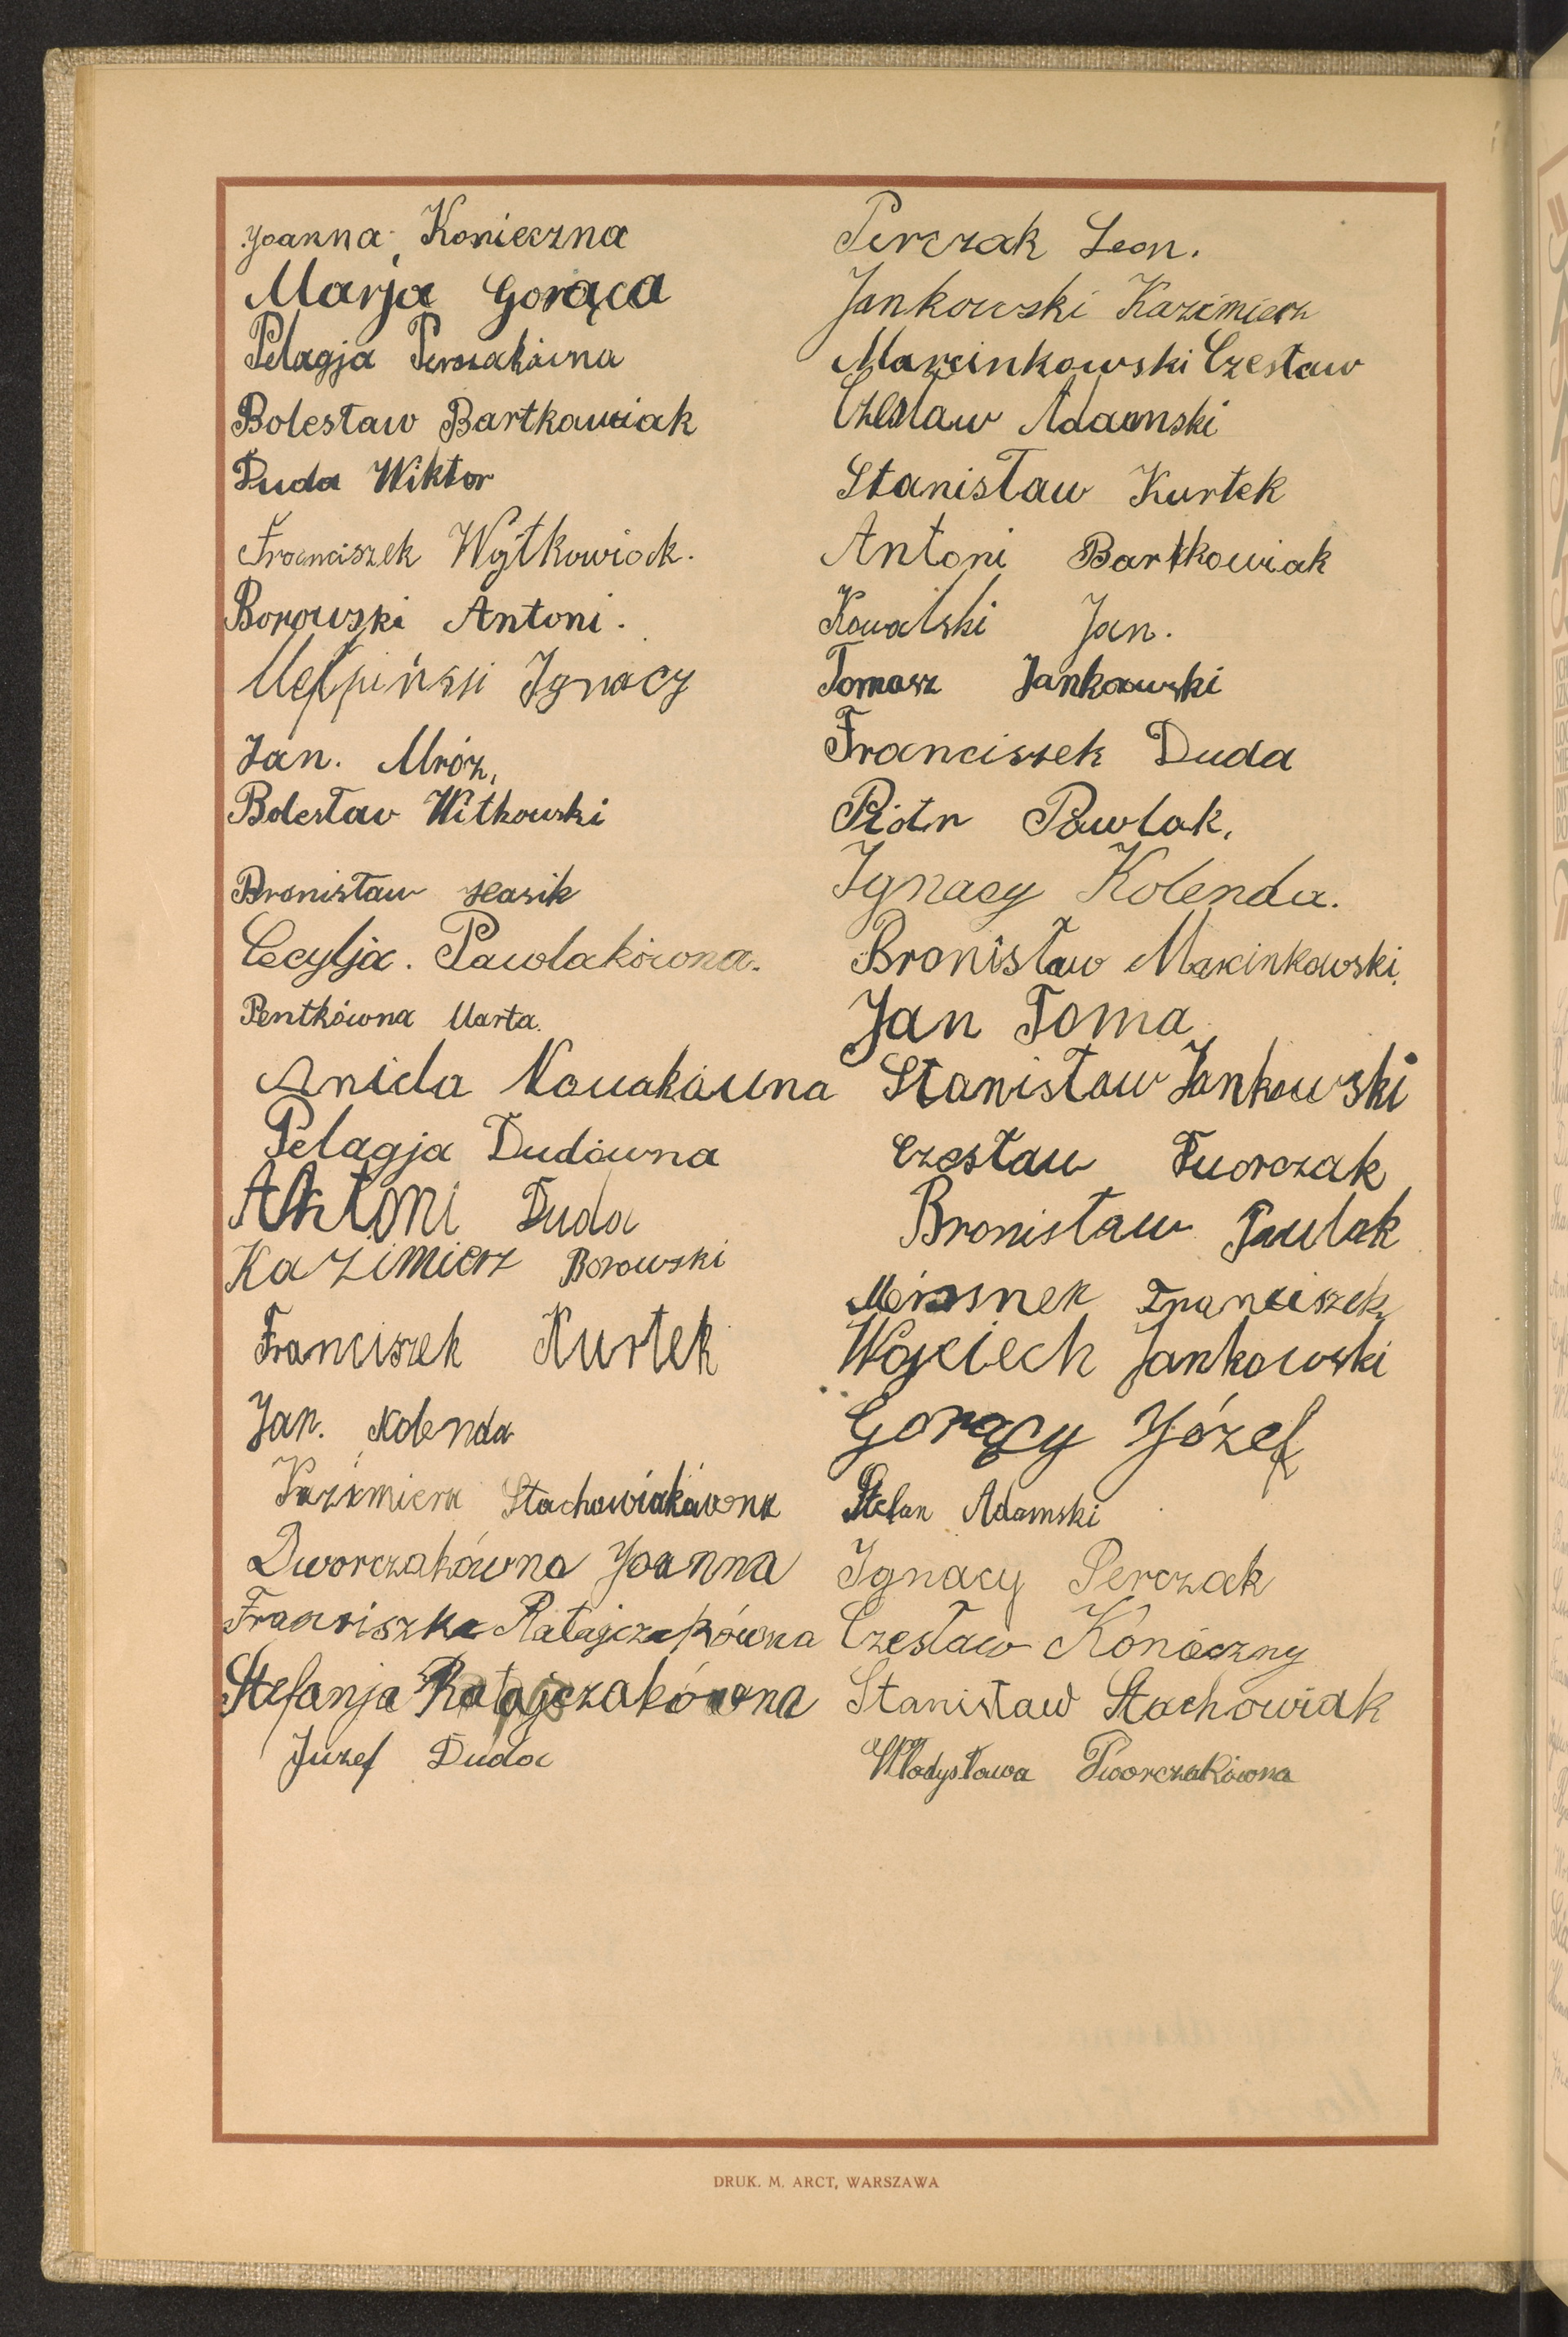 Joanna Konieczna
Marja Gorąca
Pelagja Perczakówna
Bolesław Bartkowiak
Duda Wiktor
Franciszek Wojtkowiak.
Borowski Antoni.
Ignacy
Jan. Mróz,
Bolesław Witkowski
Bronisław Hasik
Cecylja. Pawlakówna.
Pentkówna Marta.
Anida Nowakówna
Pelagja Dudówna
Antoni Duda
Kazimierz Borowski
Franciszek Kurtek
Jan. Kolenda
Kazimiera Stachowiakówna
Dworczakówna Joanna
Franciszka Ratajczakówna
Stefanja Ratajczakówna
Juzef Duda
Perczak Leon.
Jankowski Kazimierz
Marcinkowski Czesław
Czesław Adamski
Stanisław Kurtek
Antoni Bartkowiak
Kowalski Jan.
Tomasz Jankowski
Franciszek Duda
Piotr Pawlak,
Ignacy Kolenda.
Bronisław Marcinkowski.
Jan Toma
Stanisław Jankowski
Czesław Tworczak
Bronisław Pawlak
Franciszek
Wojciech Jankowski
Gorący Józef
Stefan Adamski
Ignacy Perczak
Czesław Koneczny
Stanisław Stachowiak
Władysława Tworczakówna
DRUK. M. ARCT, WARSZAWA